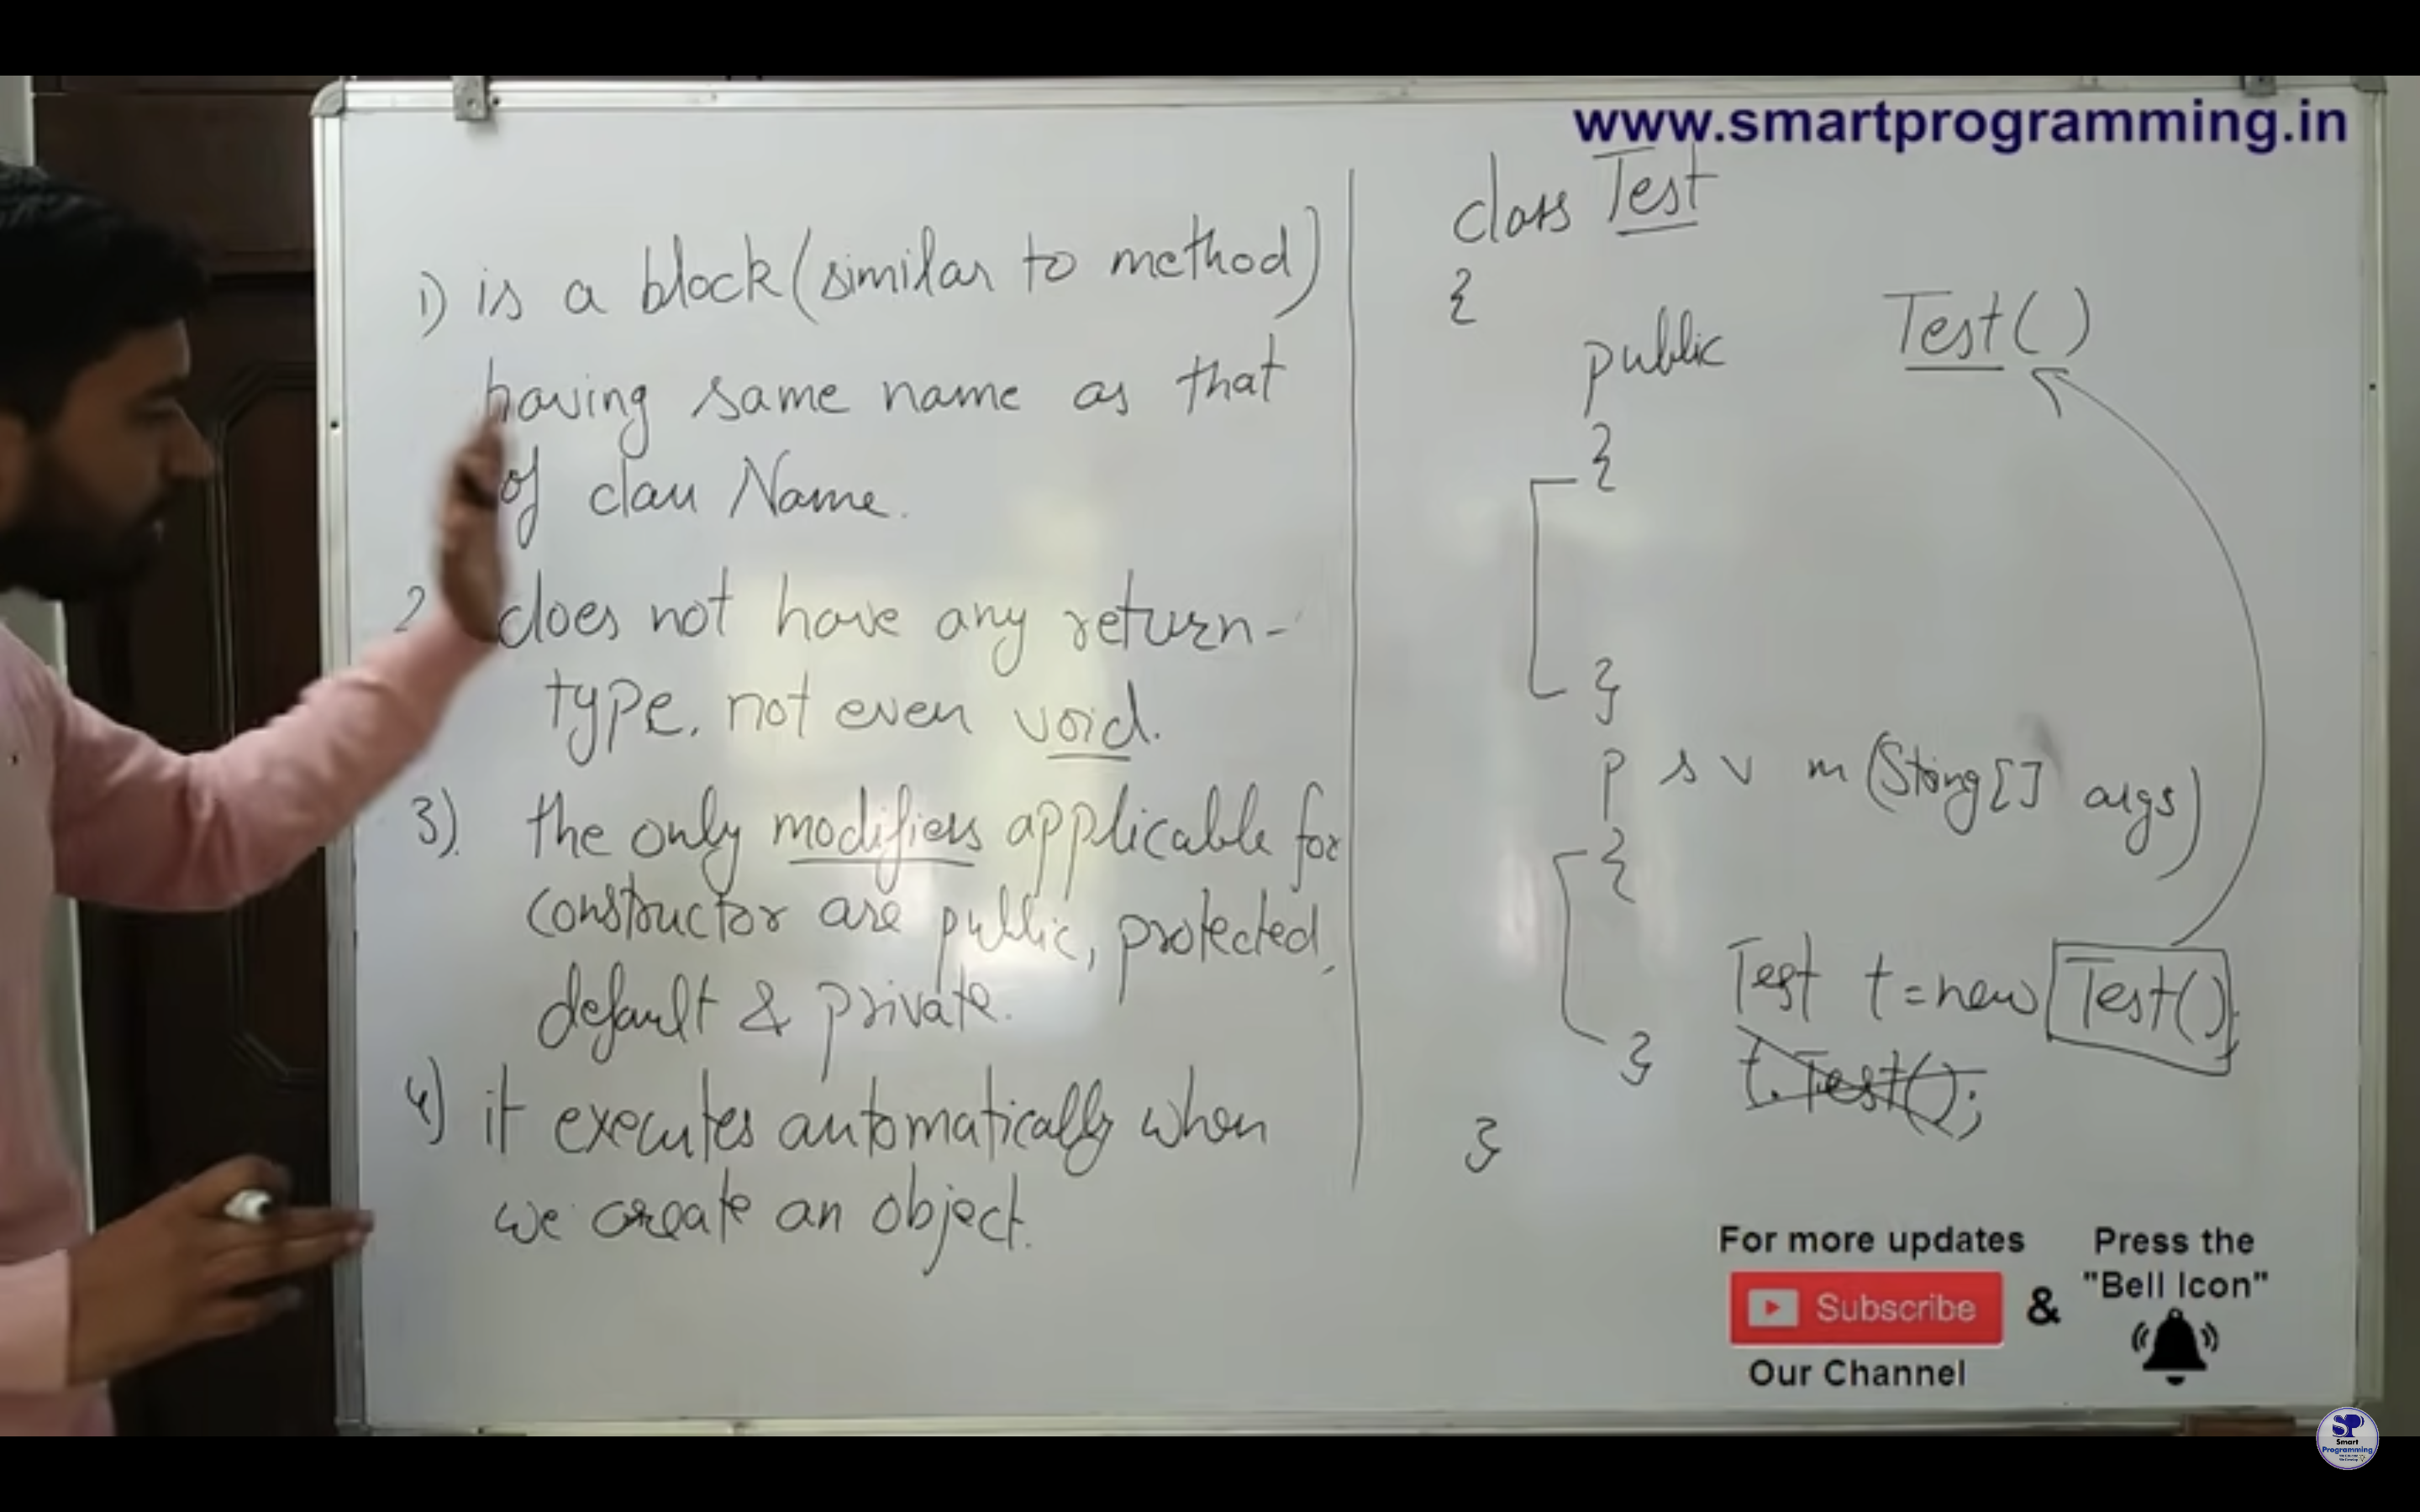 www.smartprogramming.in
1) is a block (similar to method)
having same name as that
of class Name.
2 does not have any return-
type, not even void.
3). the only modifiers applicable for
constructor are public, protected,
default & private.
4) it executes automatically when
we create an object.
class Test
{
public Test()
{
}
p s v m (String[] args)
{
Test t = new Test();
t.Test();
}
}
For more updates
Subscribe
Our Channel
&
Press the
"Bell Icon"
SP
Smart
Programming